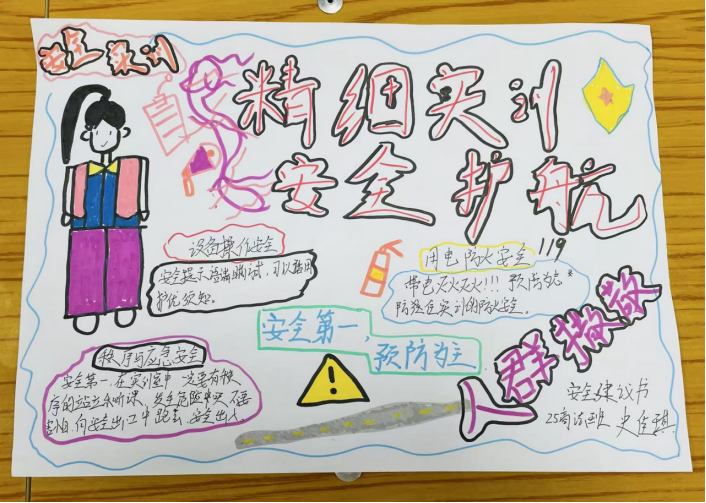 安全实训
精细实训
安全护航
设备操作安全
安全提示
护优须知。
用电防火安全 119
带电灭火灭火!!! 预防为主
实训的防火安全。
安全第一,
预防为主
秩序与应急安全
安全第一,在实训室中一定要有秩
序的站立和听课,发生危险中央不要
向安全出口中跑去,安全出入
人群撤散
安全建议书
25商流班 史佳琪